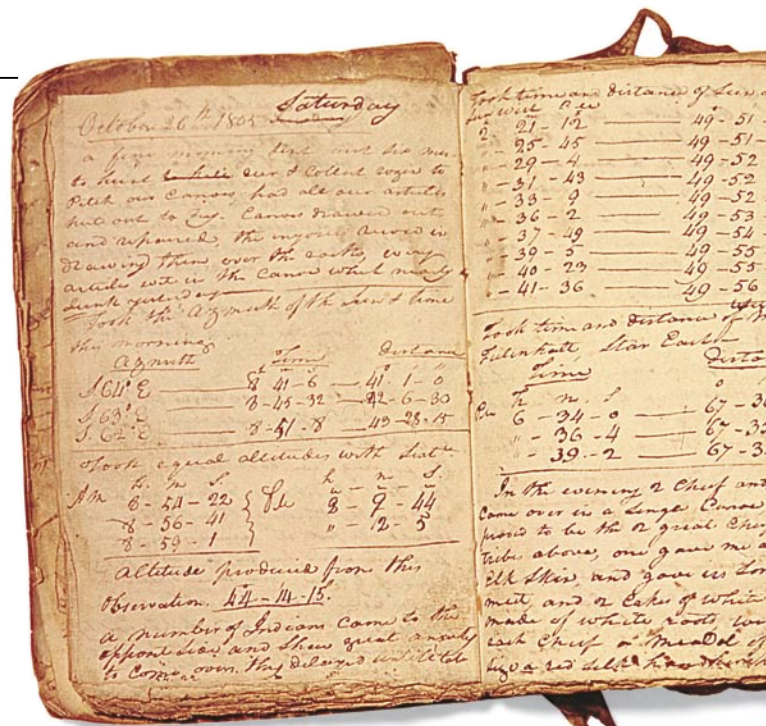 October 26th 1805 Saturday
a fine morning Sent out Six men
to hunt deer & Collect rozin to
Pitch our Canoes, had all our articles
put out to dry. Canoes drawed out
and repaired, the injories recved in
drawing them over the rocks, every
articles wet in the Canoe which nearly
Sunk yesterday
Took the Azmuth of the sun & time
this morning
Azmuth Time Distance
S. 64° E 8 41 - 6 41° 1 - 0
S. 63° E 8 - 45 - 32 42 - 6 - 30
S. 62° E 8 - 51 - 8 43 - 28 - 15
Took equal altitudes with
h. m. S. h m S.
AM 8 - 54 - 22 8 - 9 - 44
8 - 56 - 41 " - 12 - 5
8 - 59 - 1
Altitude produced from this
Observation. 44° - 14' - 15"
a number of Indians came to the
oppisit Side and Shew great anxiety
to Come over. they delayed untill late
Took time and distance of Sun
21 - 12 49° - 51
" - 25 - 45 49 - 51
" - 29 - 4 49 - 52
" - 31 - 43 49 - 52
" - 33 - 9 49 - 52
" - 36 - 2 49 - 53
" - 37 - 49 49 - 54
" - 39 - 5 49 - 55
" - 40 - 23 49 - 55
" - 41 - 36 49 - 56
Took time and distance of
Star East
Time
h m S
6 - 34 - 0 67 - 3
" - 36 - 4 67 - 3
" - 39 - 2 67 - 3
In the evening 2 Chief and
Came over in a Single Canoe
to be the 2 great Chief
tribe above, one gave me a
Elk Skin, and gave us Som
meet, and 2 Cakes of white
made of white roots, we
each Chief a Meadel of
Size a red Silk